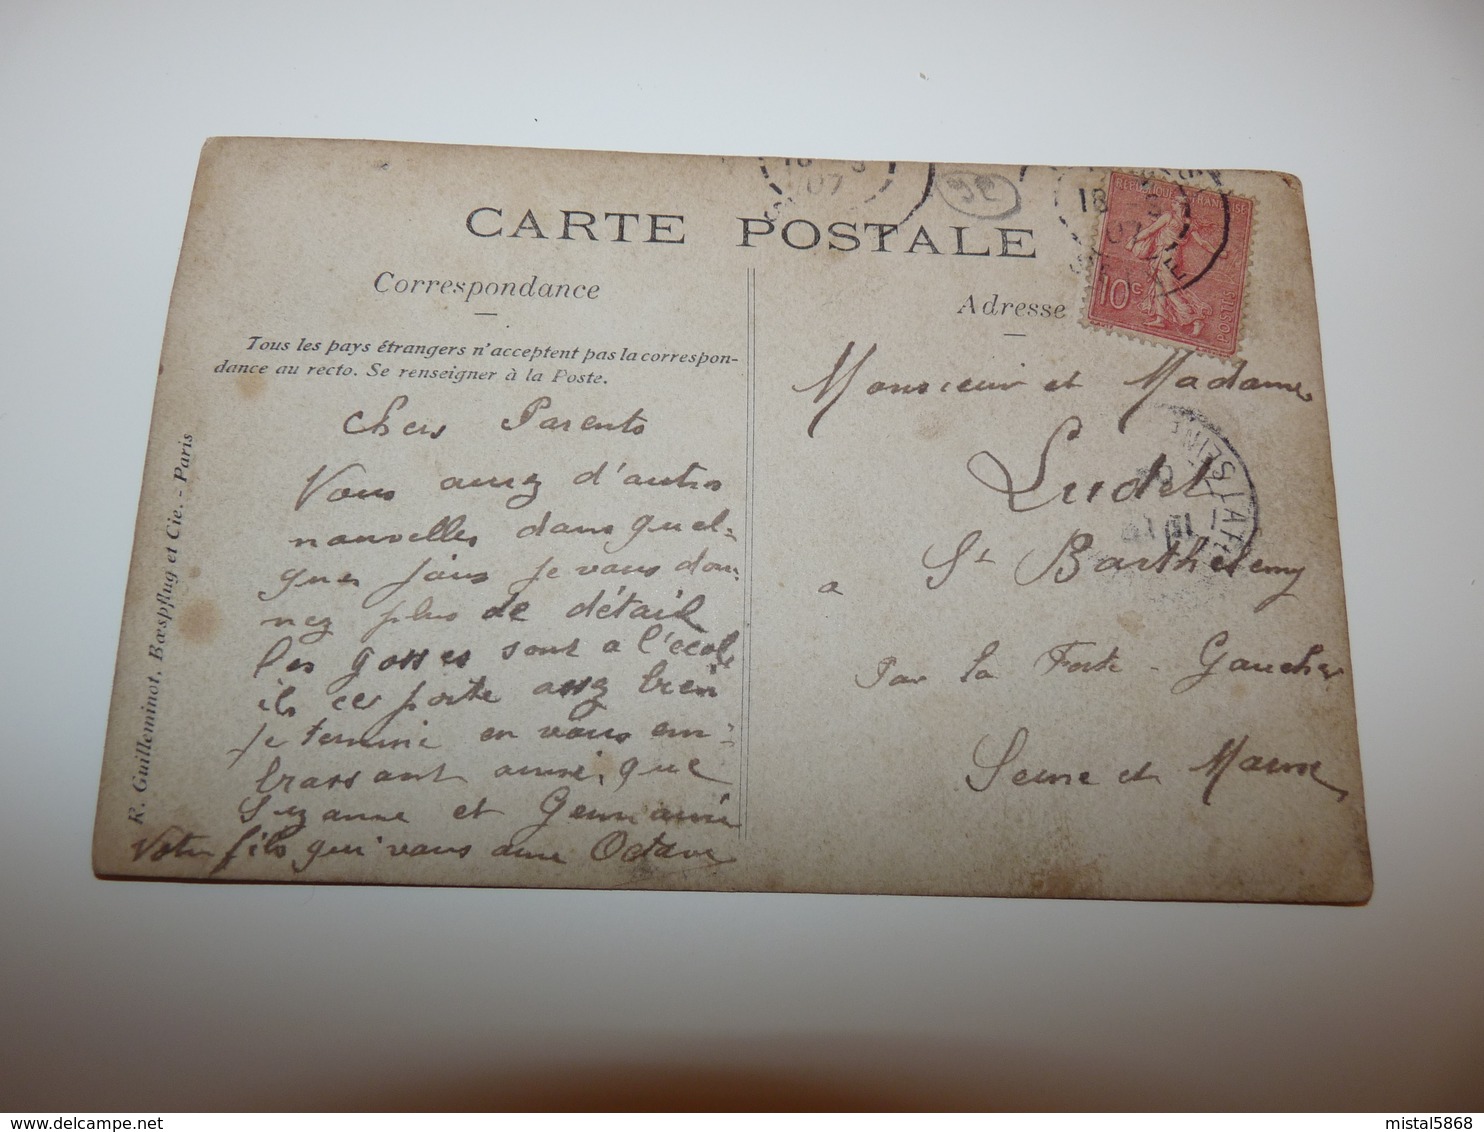 CARTE POSTALE
Correspondance
Tous les pays étrangers n'acceptent pas la correspon-
dance au recto. Se renseigner à la Poste.
R. Guilleminot, Bœspflug et Cie. - Paris
Chers Parents
Vous aurez d'autres
nouvelles dans quel-
ques jours je vous don-
nez plus de détail
les gosses sont a l'école
ils ce porte assez bien
je termine en vous em-
brassant ainsi que
Suzanne et Germaine
Votre fils qui vous aime Octave
Adresse
Monsieur et Madame
Ludet
a St Barthelemy
Par la Ferte-Gaucher
Seine et Marne
REPUBLIQUE FRANÇAISE
10c
18
07
JE
07
SEINE
mistal5868